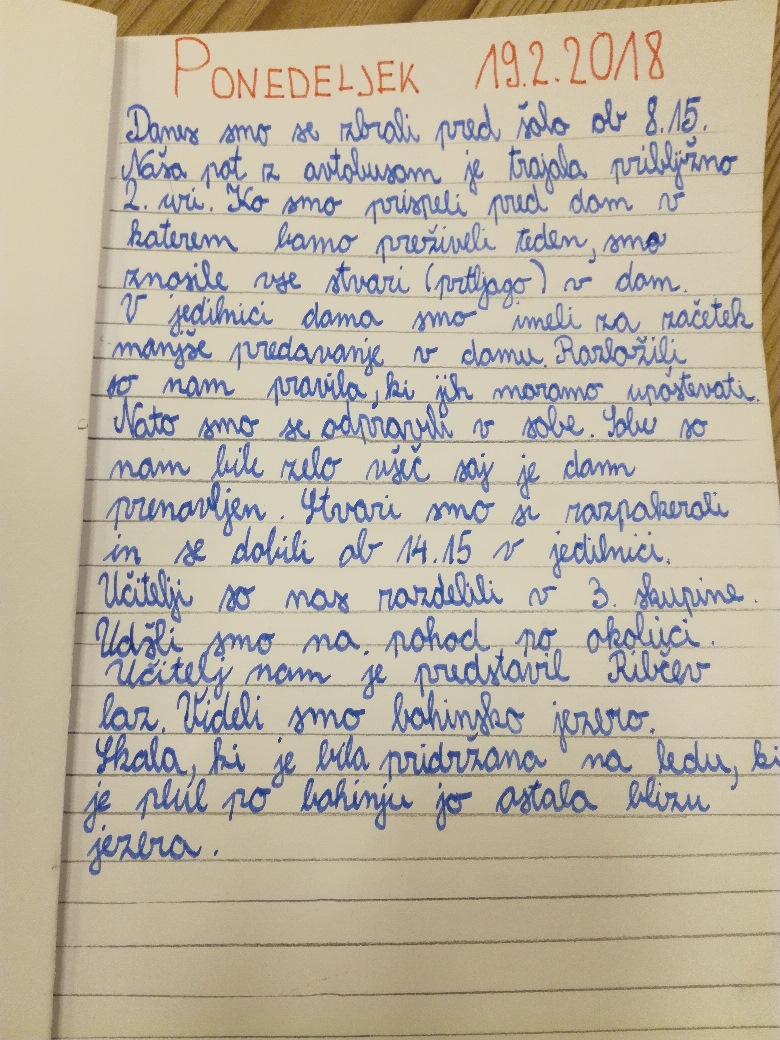 PONEDELJEK 19.2.2018
Danes smo se zbrali pred šolo ob 8.15.
Naša pot z avtobusom je trajala približno
2. uri. Ko smo prispeli pred dom v
katerem bomo preživeli teden, smo
znosile vse stvari (prtljago) v dom.
V jedilnici doma smo imeli za začetek
manjše predavanje v domu. Razložili
so nam pravila, ki jih moramo upoštevati.
Nato smo se odpravili v sobe. Sobe so
nam bile zelo všeč saj je dom
prenovljen. Stvari smo si razpakerali
in se dobili ob 14.15 v jedilnici.
Učitelji so nas razdelili v 3. skupine.
Udšli smo na pohod po okolici.
Učitelj nam je predstavil Ribčev
laz. Videli smo bohinjsko jezero.
Skala, ki je bila pridržana na ledu, ki
je plul po bohinju jo ostala blizu
jezera.